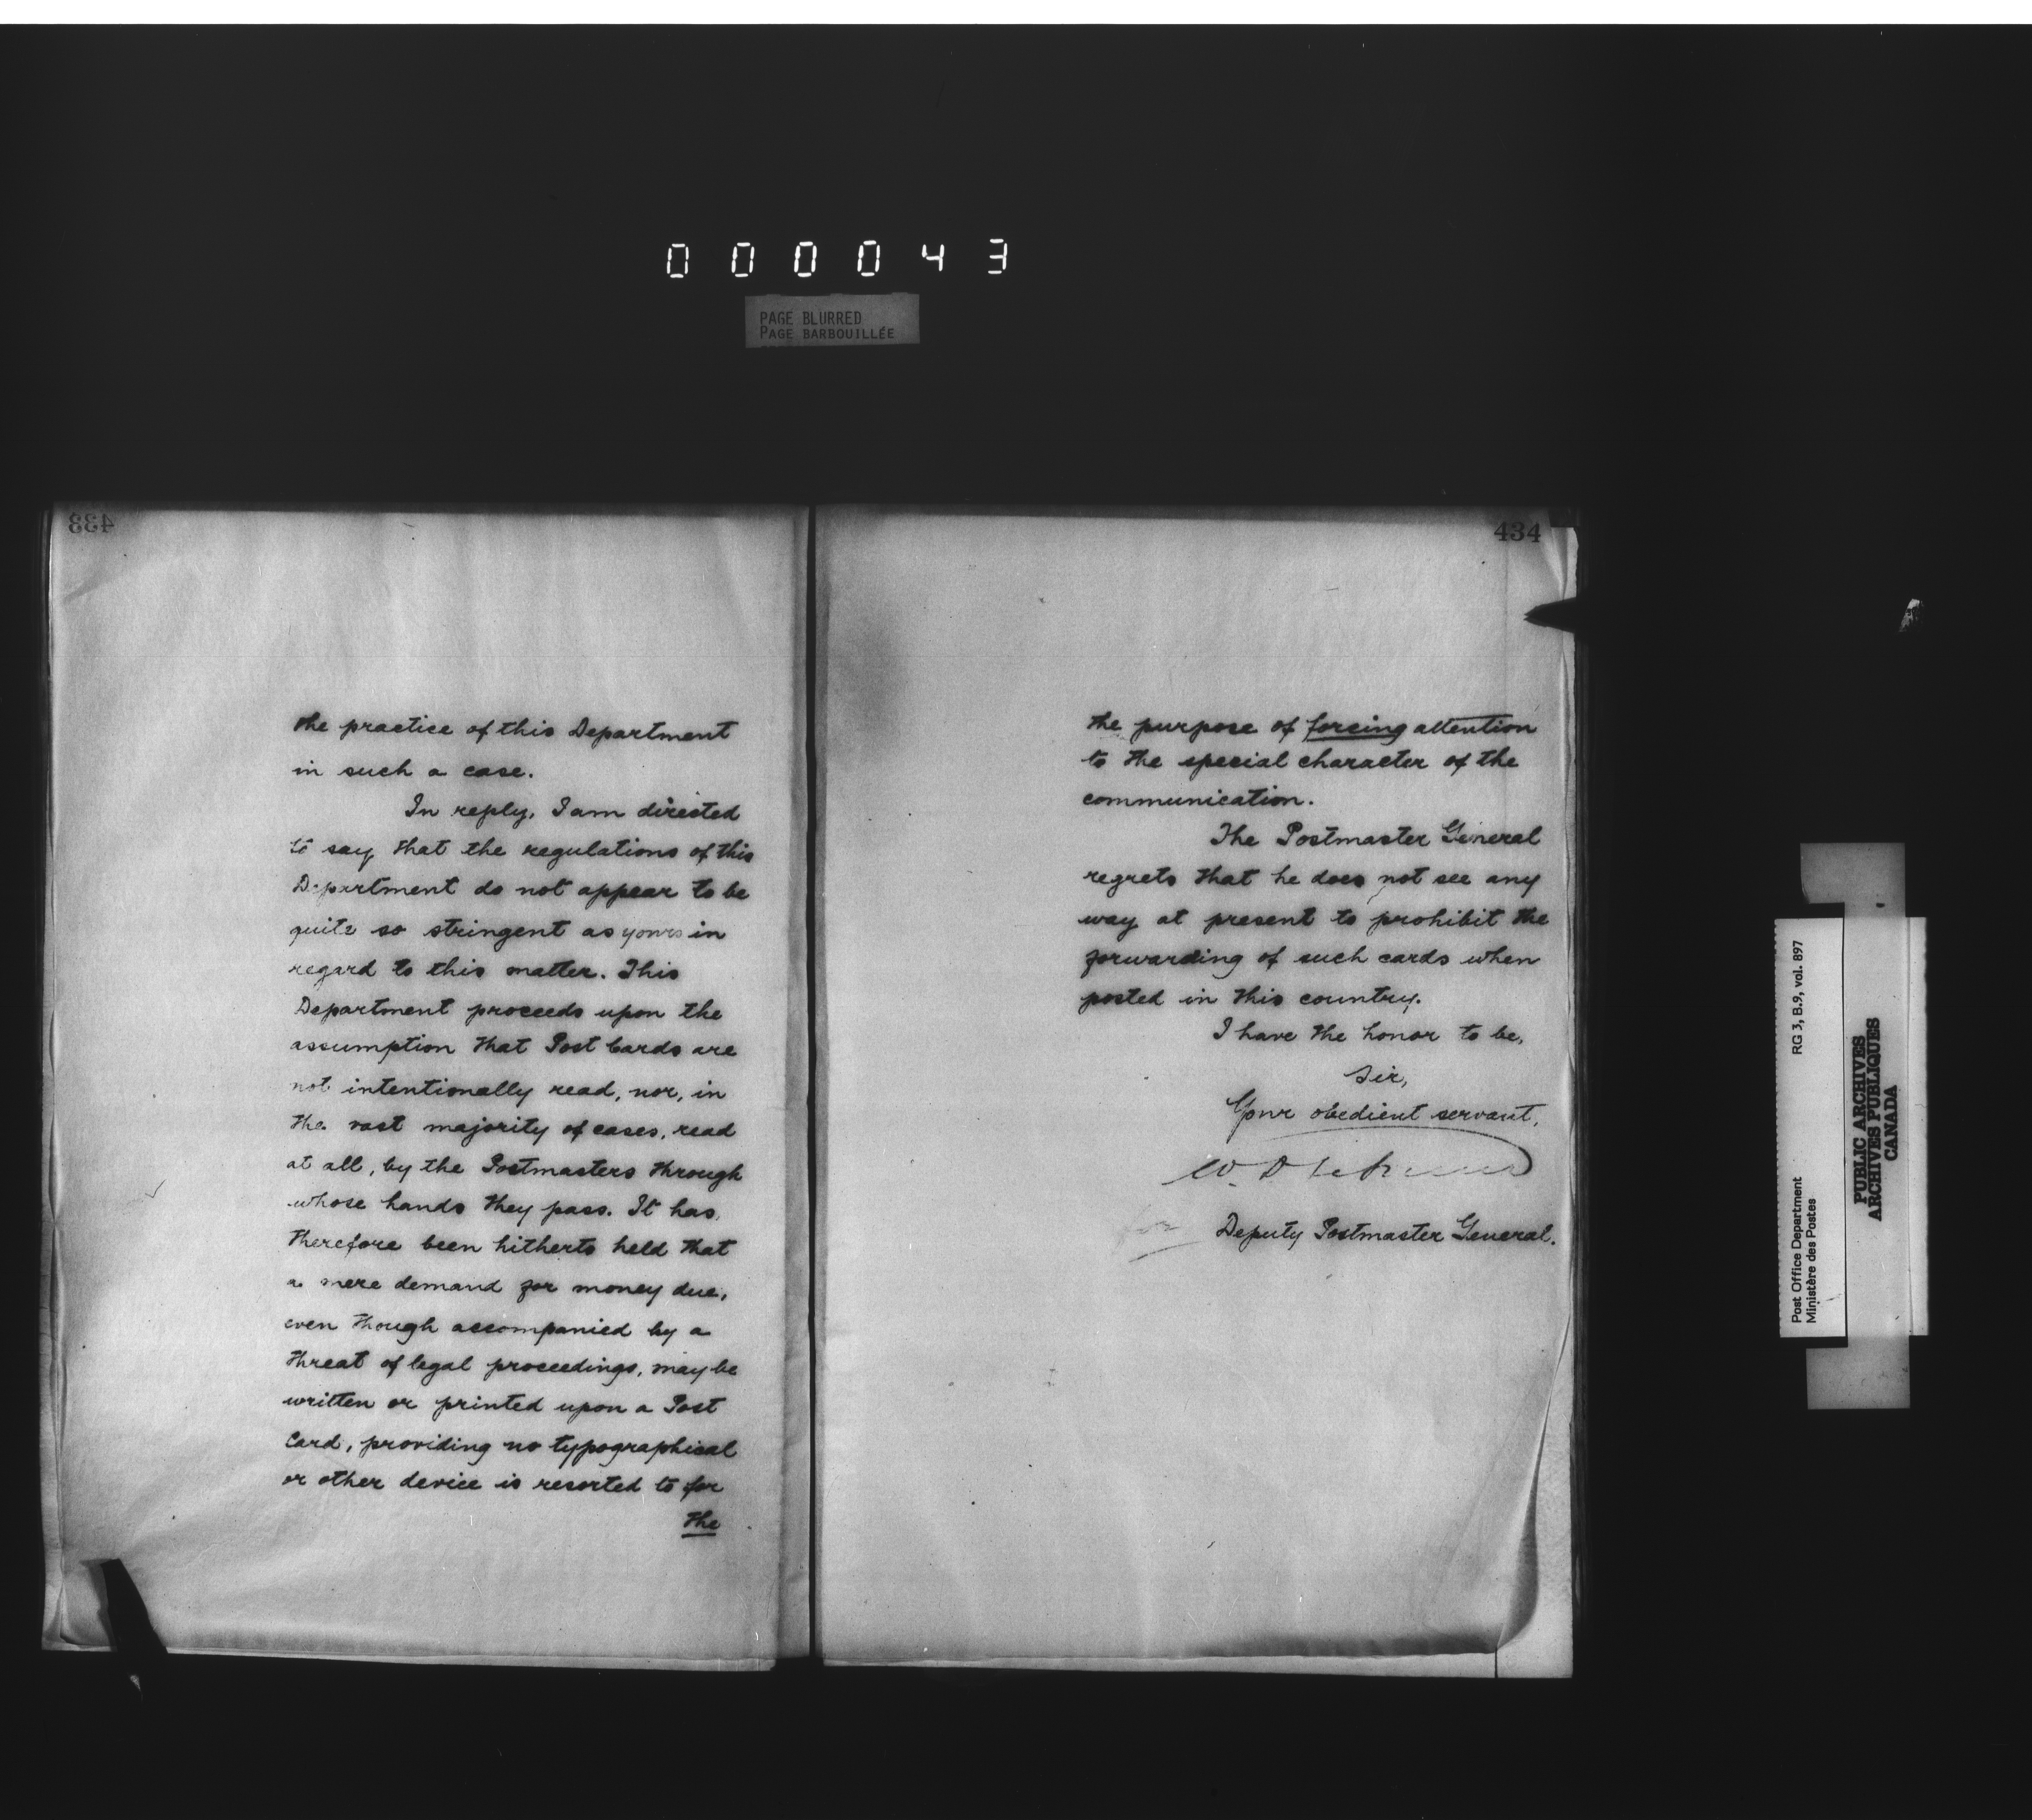 000043
PAGE BLURRED
PAGE BARBOUILLÉE
433
the practice of this Department
in such a case.
In reply, I am directed
to say that the regulations of this
Department do not appear to be
quite so stringent as yours in
regard to this matter. This
Department proceeds upon the
assumption that Post Cards are
not intentionally read, nor, in
the vast majority of cases, read
at all, by the Postmasters through
whose hands they pass. It has,
therefore been hitherto held that
a mere demand for money due,
even though accompanied by a
threat of legal proceedings, may be
written or printed upon a Post
Card, providing no typographical
or other device is resorted to for
the
434
the purpose of forcing attention
to the special character of the
communication.
The Postmaster General
regrets that he does not see any
way at present to prohibit the
forwarding of such cards when
posted in this country.
I have the honor to be,
Sir,
Your obedient servant,
W. D.
for Deputy Postmaster General.
Post Office Department
Ministère des Postes
RG 3, B.9, vol. 897
PUBLIC ARCHIVES
ARCHIVES PUBLIQUES
CANADA